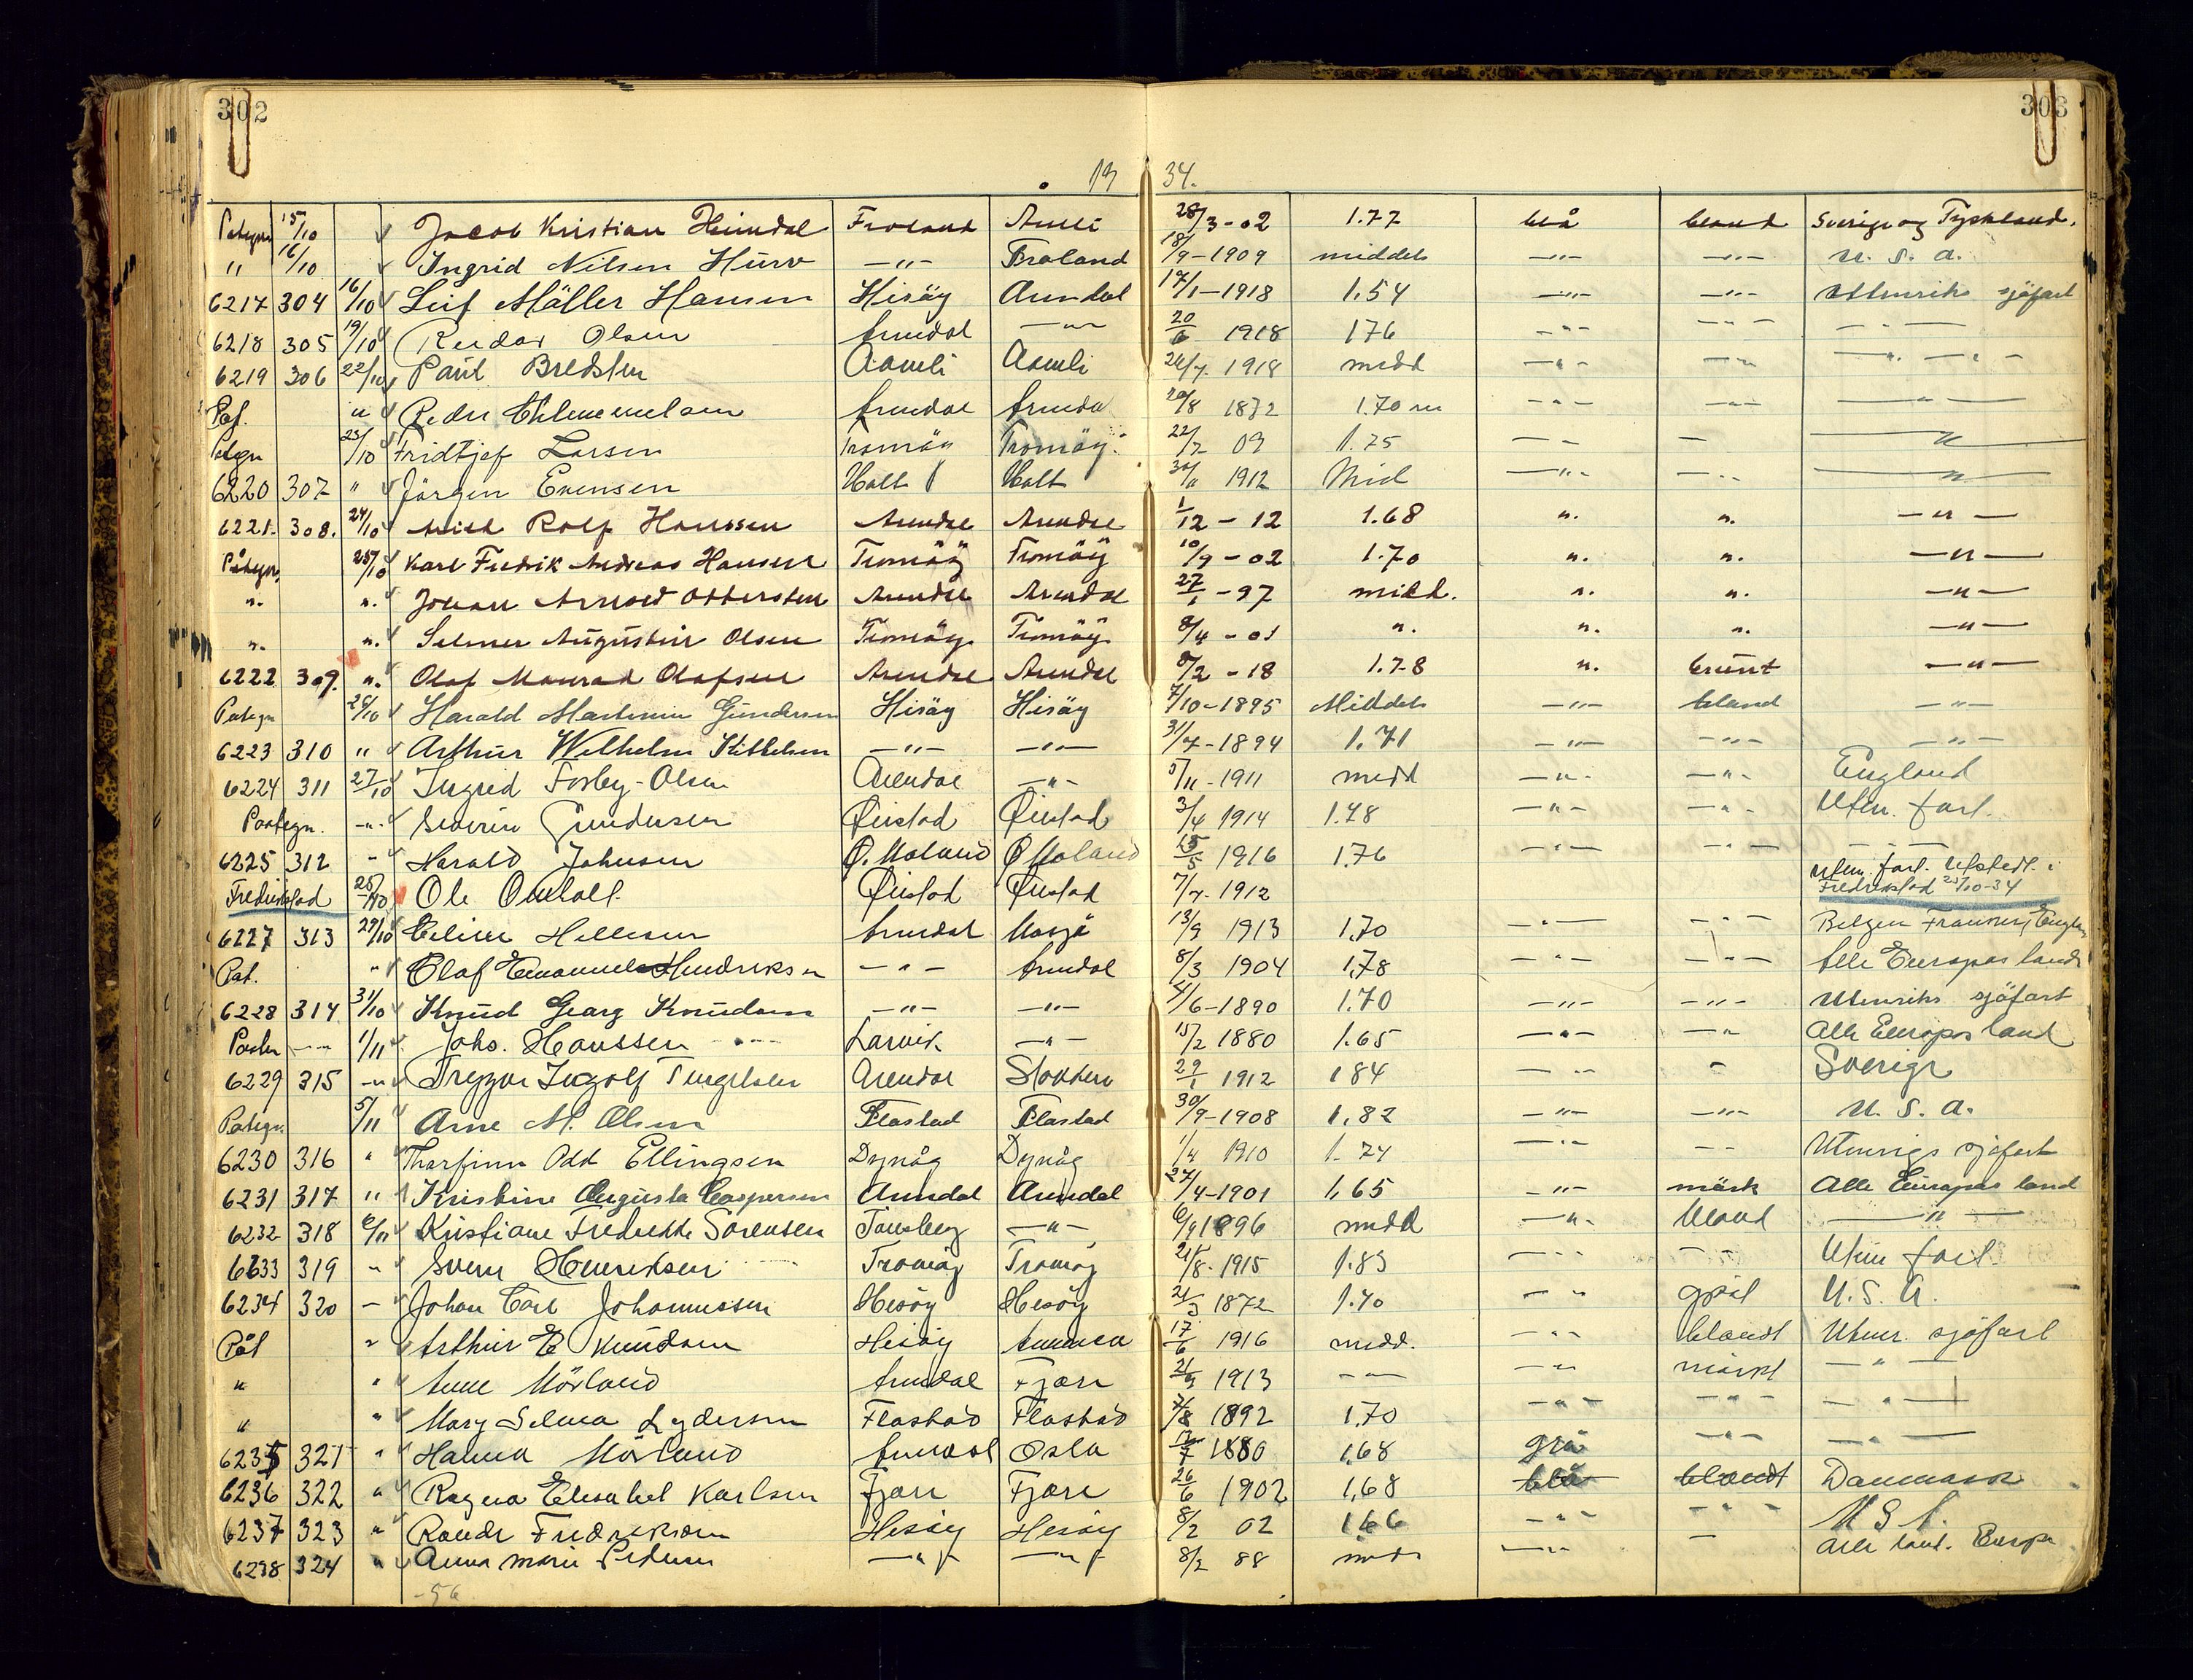 302 303
19 34.
Påtegn 15/10 Jacob Kristian Heimdal Froland Åmli 28/3-02 1.77 blå blond Sverige og Tyskland.
" 16/10 Ingrid Nilsen Hurv —"— Froland 18/9-1909 middels —"— —"— U. S. A.
6217 304 16/10 Leif Möller Hansen Hisöy Arendal 17/1-1918 1.54 —"— —"— Utenriks sjöfart
6218 305 19/10 Reidar Olsen Arendal —"— 20/6 1918 176 —"— —"— —"—
6219 306 22/10 Paul Bredsten Aamli Aamli 26/7 1918 midd —"— —"— —"—
Pat. " Peder Arendal Arendal 20/8 1872 1.70 m —"— —"— —"—
Patgn 23/10 Fridtjof Larsen Tromöy Tromöy. 22/7 09 1.75 — — — —"—
6220 307 " Jörgen Evensen Holt Holt 30/11 1912 Mid —"— —"— —"—
6221. 308. 24/10 Rolf Hanssen Arendal Arendal 1/12-12 1.68 ". ". —"—
Påtegn. 25/10 Karl Fredrik Andreas Hansen Tromöy Tromöy 10/9-02 1.70 ". ". —"—
". ". Johan Arnold Ottersten Arendal Arendal 27/1-97 midd. ". ". —"—
". ". Selmer Augustin Olsen Tromöy Tromöy 8/4-01 ". ". ". —"—
6222 309. ". Olaf Monrad Olafsen Arendal Arendal 8/2-18 1.78 ". brunt —"—
Patgn 26/10 Harald Martinin Gundersen Hisöy Hisöy 7/10-1895 Middels —"— blond —"—
6223 310 " Arthur Wilhelm Kittelsen —"— —"— 31/7-1894 1.71 —"— —"— —"—
6224 311 27/10 Ingrid Fosby-Olsen Arendal —"— 5/11-1911 midd —"— —"— England
Paategn. —"— Severin Gundersen Øiestad Øiestad 3/4 1914 1.78 —"— —"— Uten. fart.
6225 312 " Harald Johnsen Ø. Moland Ø Moland 15/5 1916 1.76 —"— —"—
Fredrikstad 25/10 Ole Omholt Øiestad Øiestad 7/7-1912 Uten. fart. Utstedt. i Fredrikstad 25/10-34
6227 313 29/10 Hellesen Arendal 13/9 1913 1,70 —"— —"— Belgien
Pat. " Olaf Emanuel Hendriksen —"— Arendal 8/3 1904 1,78 —"— —"— Alle Europas lande
6228 314 31/10 Knud Georg Knudsen —"— —"— 4/6-1890 1.70 —"— —"— Utenriks sjöfart
1/11 Johs. Hanssen Larvik —"— 15/2 1880 1.65 —"— —"— Alle Europas land
6229 315 —"— Trygve Ingolf Arendal Stokken 29/1 1912 184 —"— — Sverige
Pategn. 5/11 Arne M. Olsen Flostad Flostad 30/9-1908 1,82 —"— —"— U. S. A.
6230 316 " Thorfinn Odd Ellingsen Dypvåg Dypvåg 1/4 1910 1-74 —"— — Utenrigs sjöfart
6231 317 " Kristine Augusta Caspersen Arendal Arendal 27/4-1901 1,65 —"— mörk Alle Europas land
6232 318 6/11 Kristiane Fredrikke Sörensen Tönsberg —"— 6/9 1896 midd —"— blond —"—
6633 319 " Svein Henriksen Tromöy Tromöy 21/8-1915 1.83 —"— —"— Uten fart.
6234 320 — Johan Carl Johannessen Hisöy Hisöy 21/3 1872 1.70 —"— grå U. S. A.
Påt " Arthur E Knudsen Hisöy 17/6 1916 midd. —"— blondt Utenr. sjöfart
" " Anne Mörland Arendal Fjære 21/9 1913 —"— —"— mörkt —"—
" " Mary Selma Lydersen Flostad Flostad 7/8 1892 1,70 —"— —"— —"—
6235 321 " Mörland Arendal Oslo 12/7 1880 1,68 grå —"— —"—
6236 322 " Ragna Elisabet Karlsen Fjære Fjære 26/6 1902 1,68 blå blondt Danmark
6237 323 " Randi Fredriksen Hisöy Hisöy 8/2 02 1.66 —"— —"— U S A.
6238 324 " Anna Marie Pedersen —"— —"— 8/2 88 midd —"— — Alle land. Europa
-56